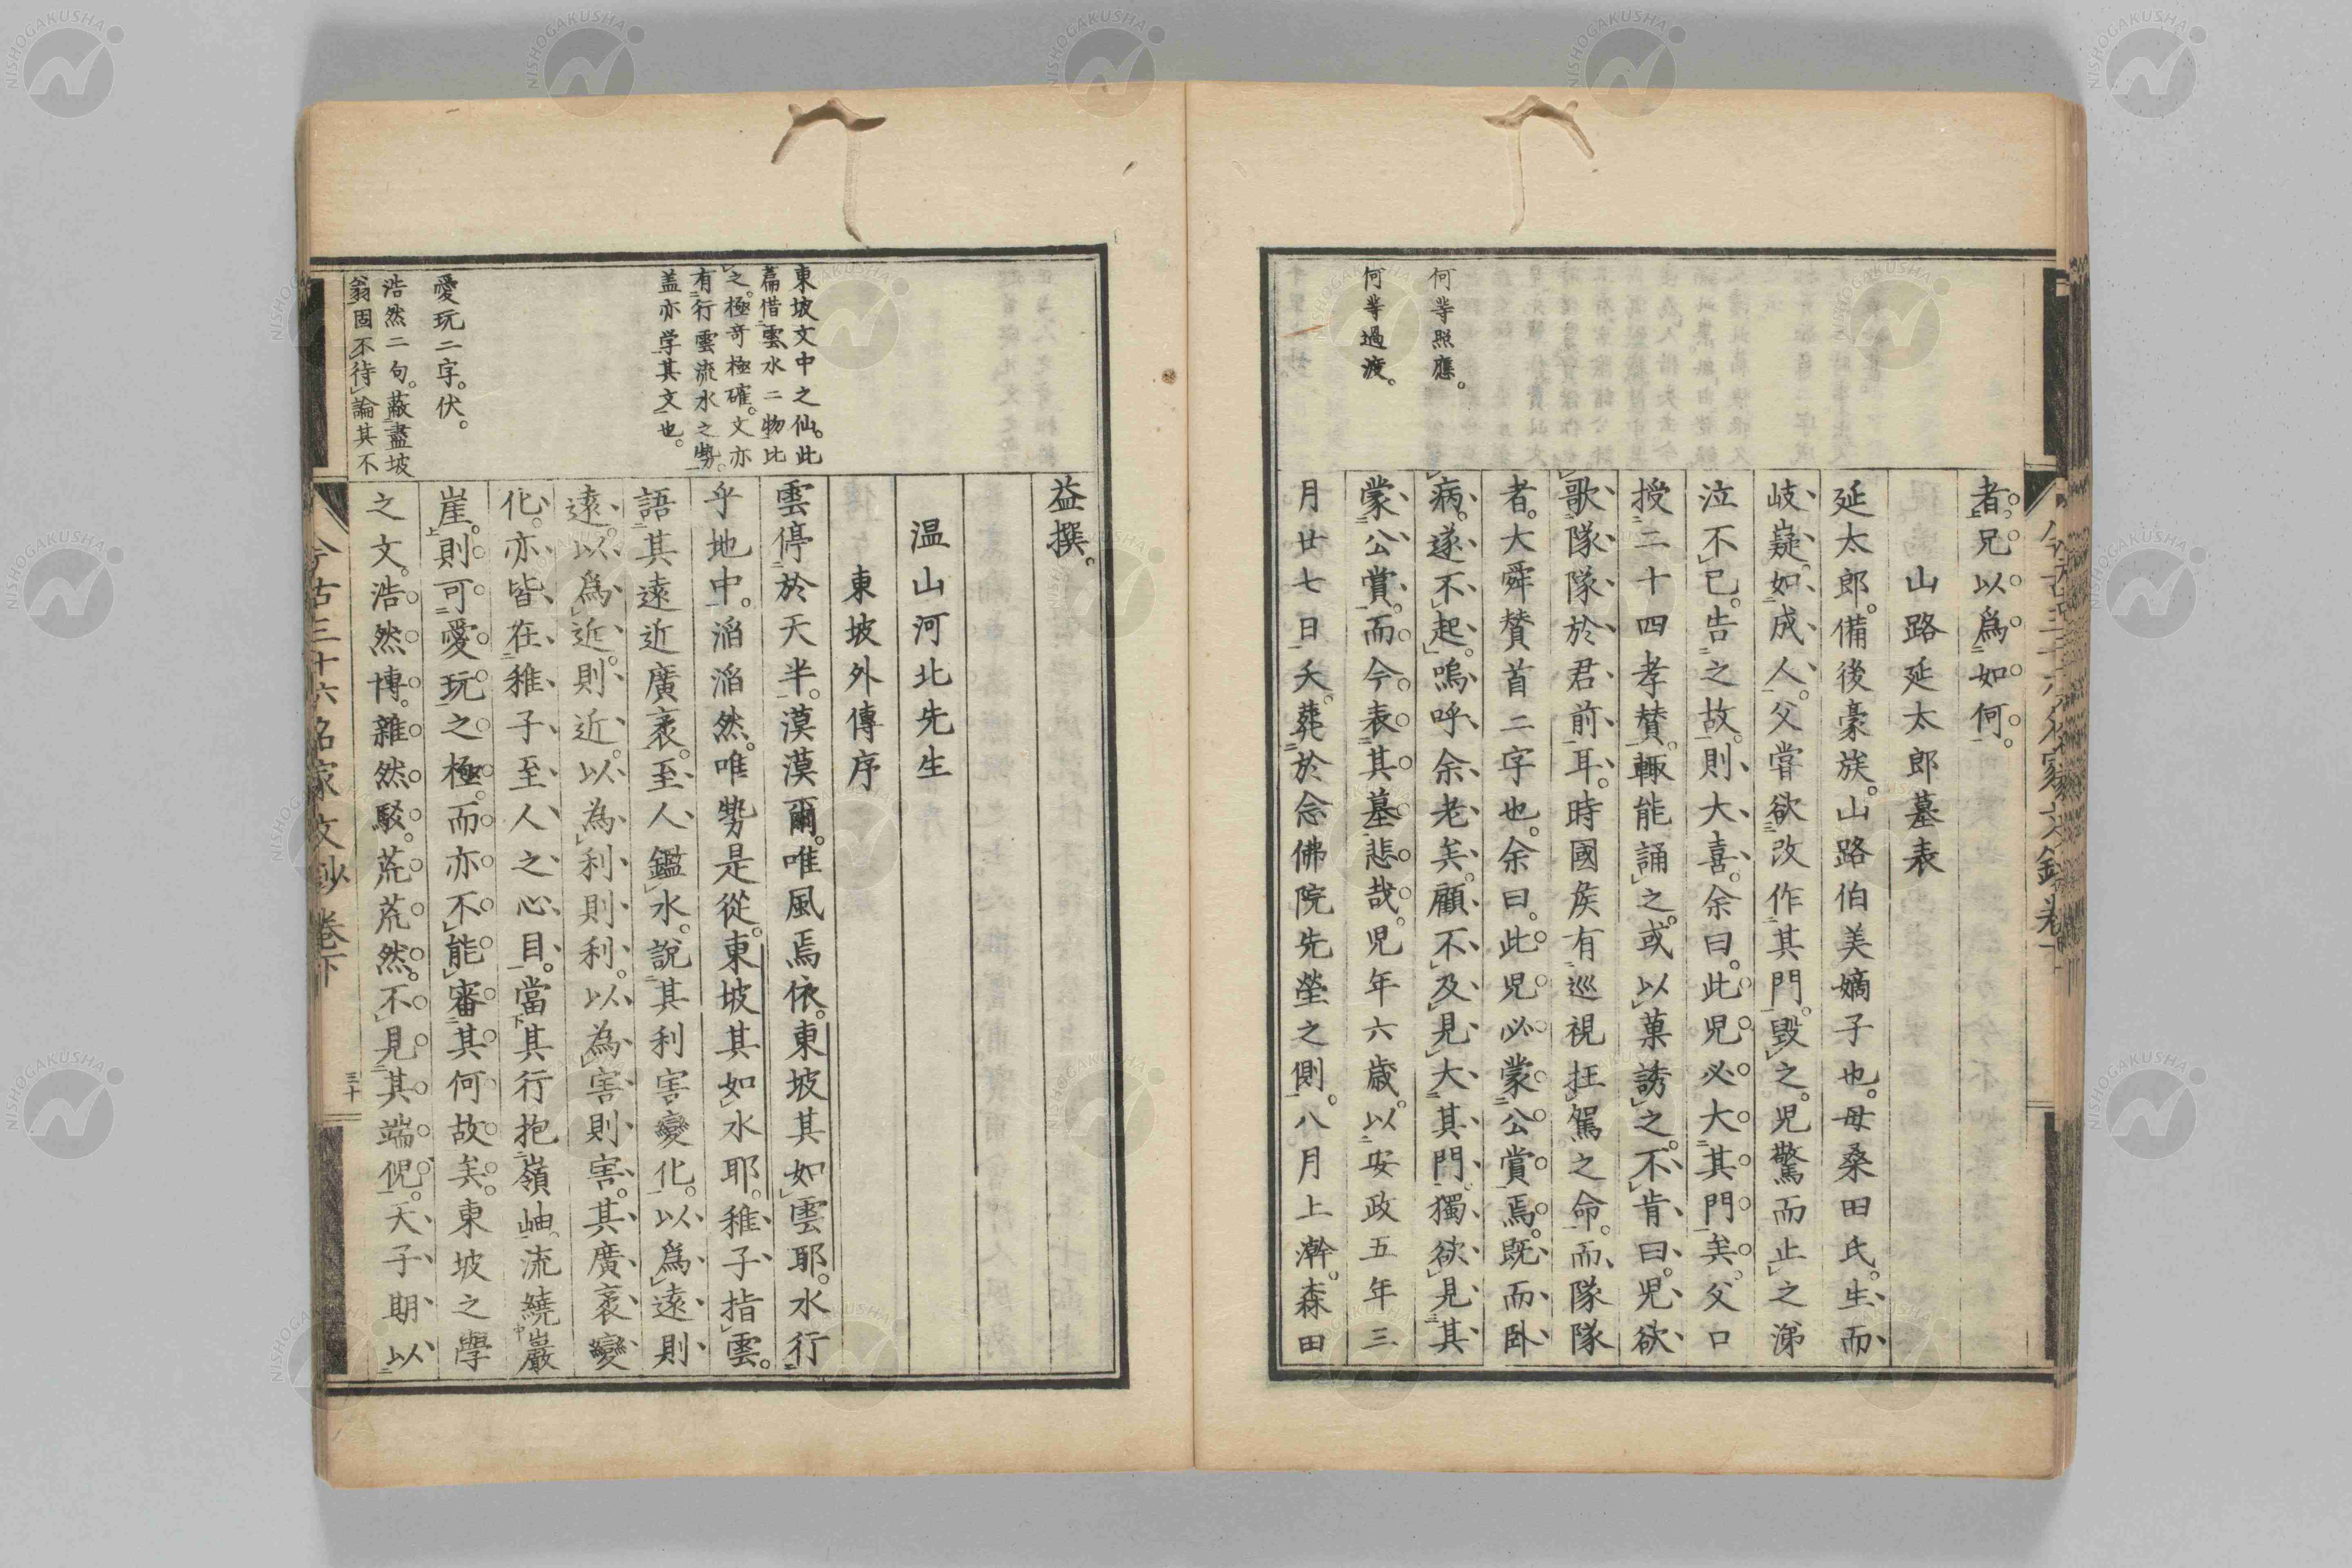 何等照應。
何等過渡。
者。兄以爲如何。
山路延太郎墓表
延太郎。備後豪族。山路伯美嫡子也。母桑田氏。生而
岐嶷。如成人。父嘗欲改作其門。毀之。兒驚而止之涕
泣不已。告之故。則大喜。余曰。此兒必大其門矣。父口
授二十四孝賛。輙能誦之。或以菓誘之。不肯曰。兒欲
歌隊隊於君前耳。時國矦有巡視抂駕之命。而隊隊
者。大舜賛首二字也。余曰。此兒必蒙公賞焉。既而臥
病。遂不起。嗚呼余老矣。顧不及見大其門。獨欲見其
蒙公賞。而今表其墓。悲哉。兒年六歲。以安政五年三
月廿七日夭。葬於念佛院先塋之側。八月上澣。森田
益撰。
温山河北先生
東坡外傳序
東坡文中之仙。此
篇借雲水二物比
之。極奇極確。文亦
有行雲流水之勢。
盖亦学其文也。
雲停於天半。漠漠爾。唯風焉依。東坡其如雲耶。水行
乎地中。滔滔然。唯勢是從。東坡其如水耶。稚子指雲。
語其遠近廣袤。至人鑑水。說其利害變化。以爲遠則
遠。以爲近則近。以為利則利。以為害則害。其廣袤變
化。亦皆在稚子至人之心目。當其行抱嶺岫。流繞巖
崖。則可愛玩之極。而亦不能審其何故矣。東坡之學
之文。浩然博。雜然駁。荒荒然。不見其端倪。天子期以
愛玩二字。伏。
浩然二句。蔽盡坡
翁固不待論其不
今古三十六名家文鈔 卷下
三十